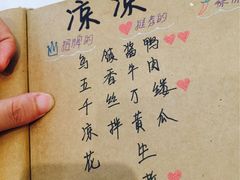 凉凉
招牌的
推荐的
酱鸭
五香牛肉
千丝万缕
凉拌黄瓜
花生